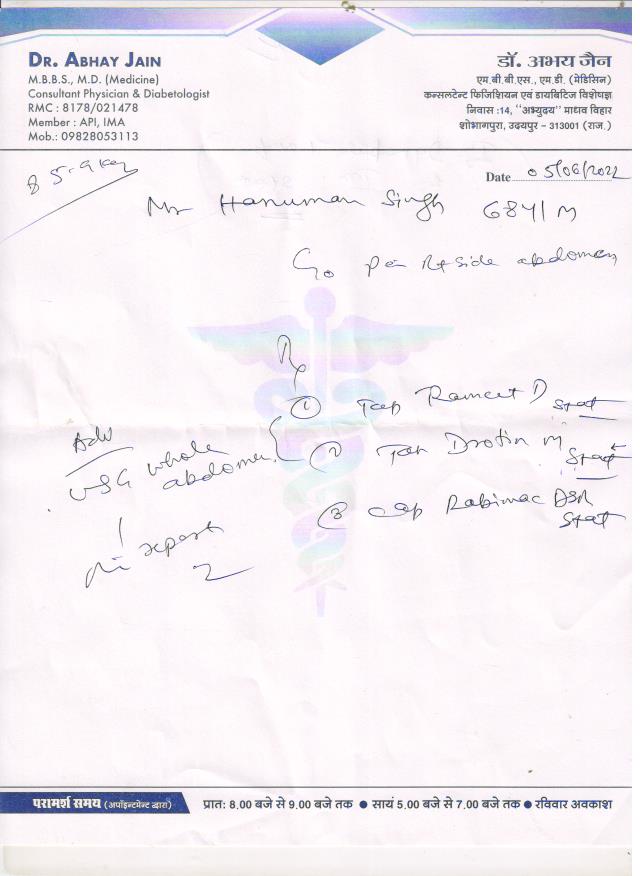 DR. ABHAY JAIN
M.B.B.S., M.D. (Medicine)
Consultant Physician & Diabetologist
RMC : 8178/021478
Member : API, IMA
Mob.: 09828053113
डॉ. अभय जैन
एम.बी.बी.एस., एम.डी. (मेडिसिन)
कन्सलटेन्ट फिजिशियन एवं डायबिटिज विशेषज्ञ
निवास :14, ‘‘अभ्युदय’’ माधव विहार
शोभागपुरा, उदयपुर – 313001 (राज.)
Date 05/06/2022
Mr Hanuman Singh 68y/M
C/o Pain Rt side abdomen
Rx
① Tab Ramcet D Stat
② Tab Drotin M Stat
③ Cap Rabimac DSR
Stat
Adv
USG whole
abdomen
report
परामर्श समय (अपॉइन्टमेन्ट द्वारा) प्रातः 8.00 बजे से 9.00 बजे तक ● सायं 5.00 बजे से 7.00 बजे तक ● रविवार अवकाश